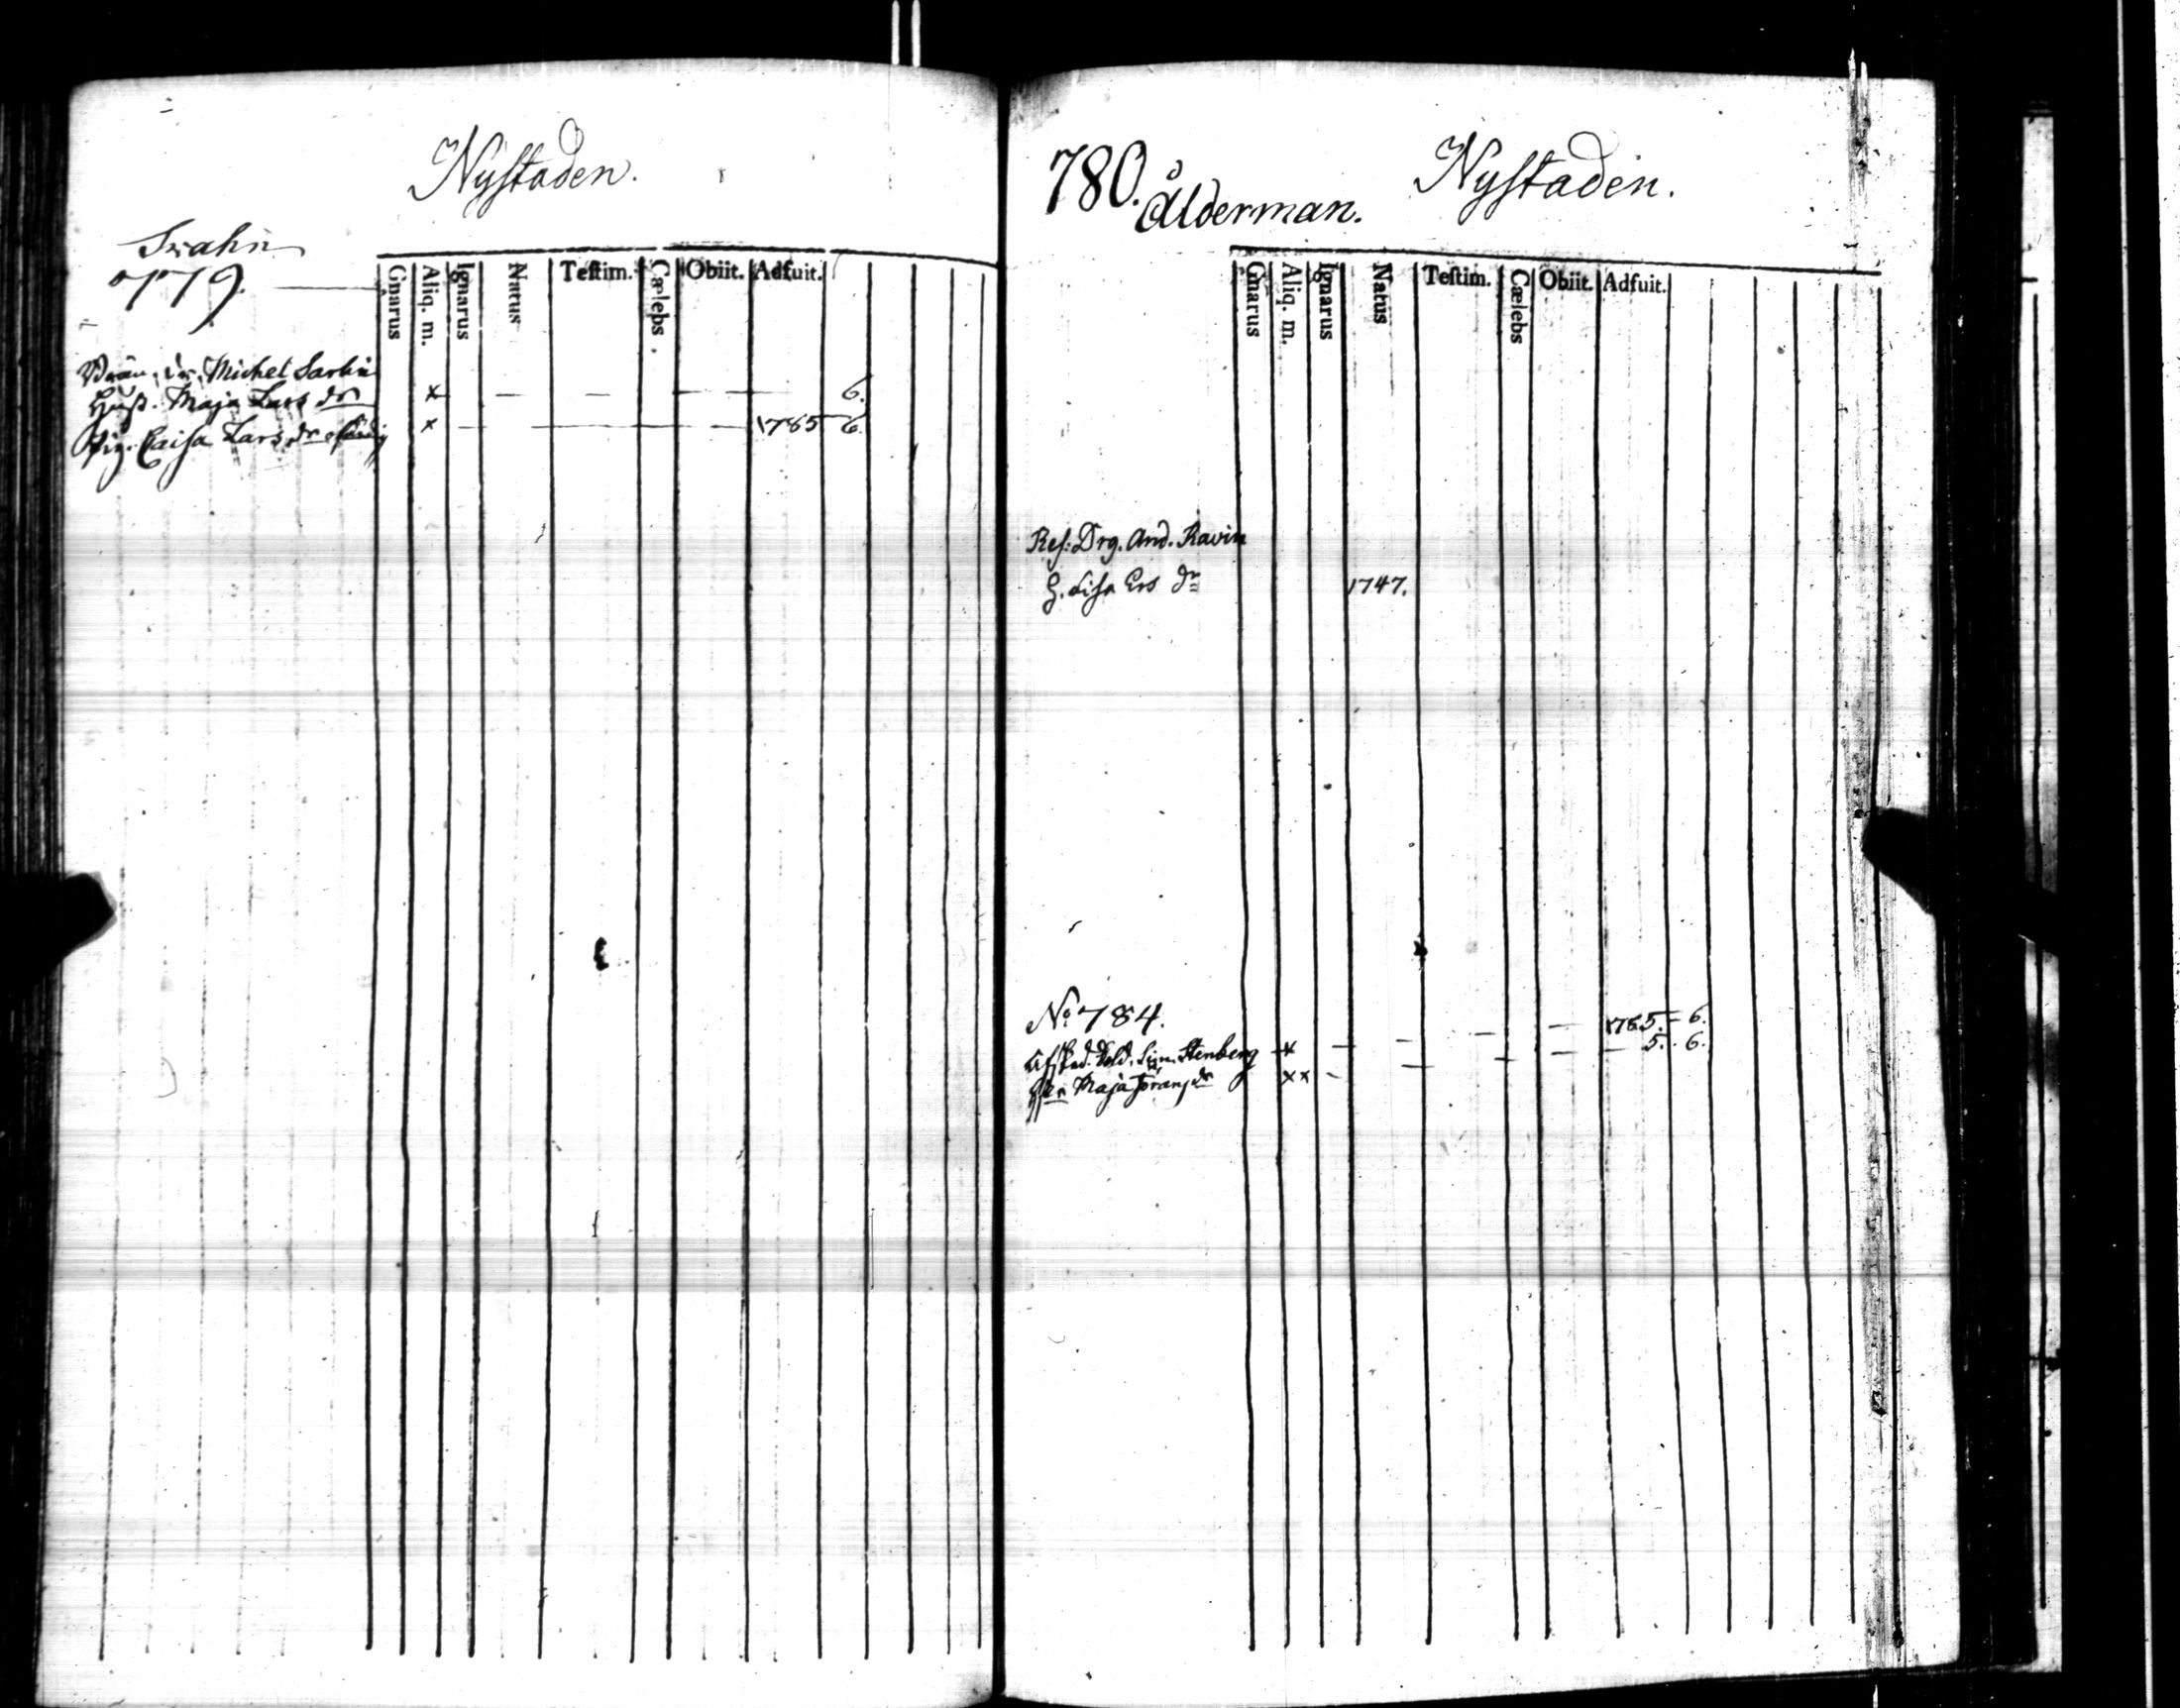 Nystaden.
779.
Gnarus Aliq. m. Ignarus Natus Testim. Cælebs. Obiit. Adfuit.
Michel
Maja Lars dr x 6.
Pig. Caisa Lars dr x 1765 6.
780. Ålderman. Nystaden.
Gnarus Aliq. m. Ignarus Natus Testim. Cælebs Obiit. Adfuit.
Ref: Drg. And. Ravin
H. Lisa Ers dr 1747.
No 784.
Afskad. Sold. Sim. Stenberg x 1765. 6.
Maja Jörans dr xx 5. 6.